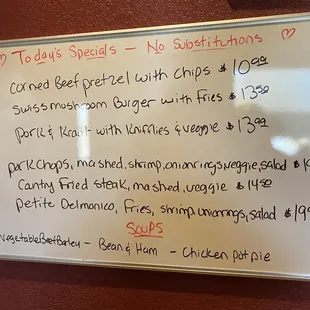 ♡ Today's Specials – No Substitutions ♡
Corned Beef pretzel with chips $10.99
Swiss mushroom Burger with Fries $13.50
pork & Kraut with Knifflies & veggie $13.99
porkchops, mashed, shrimp, onionrings, veggie, salad
Cantry Fried steak, mashed, veggie $14.50
Petite Delmonico, Fries, shrimp, onionrings, salad
Soups
vegetable Beef Barley – Bean & Ham – Chicken pot pie